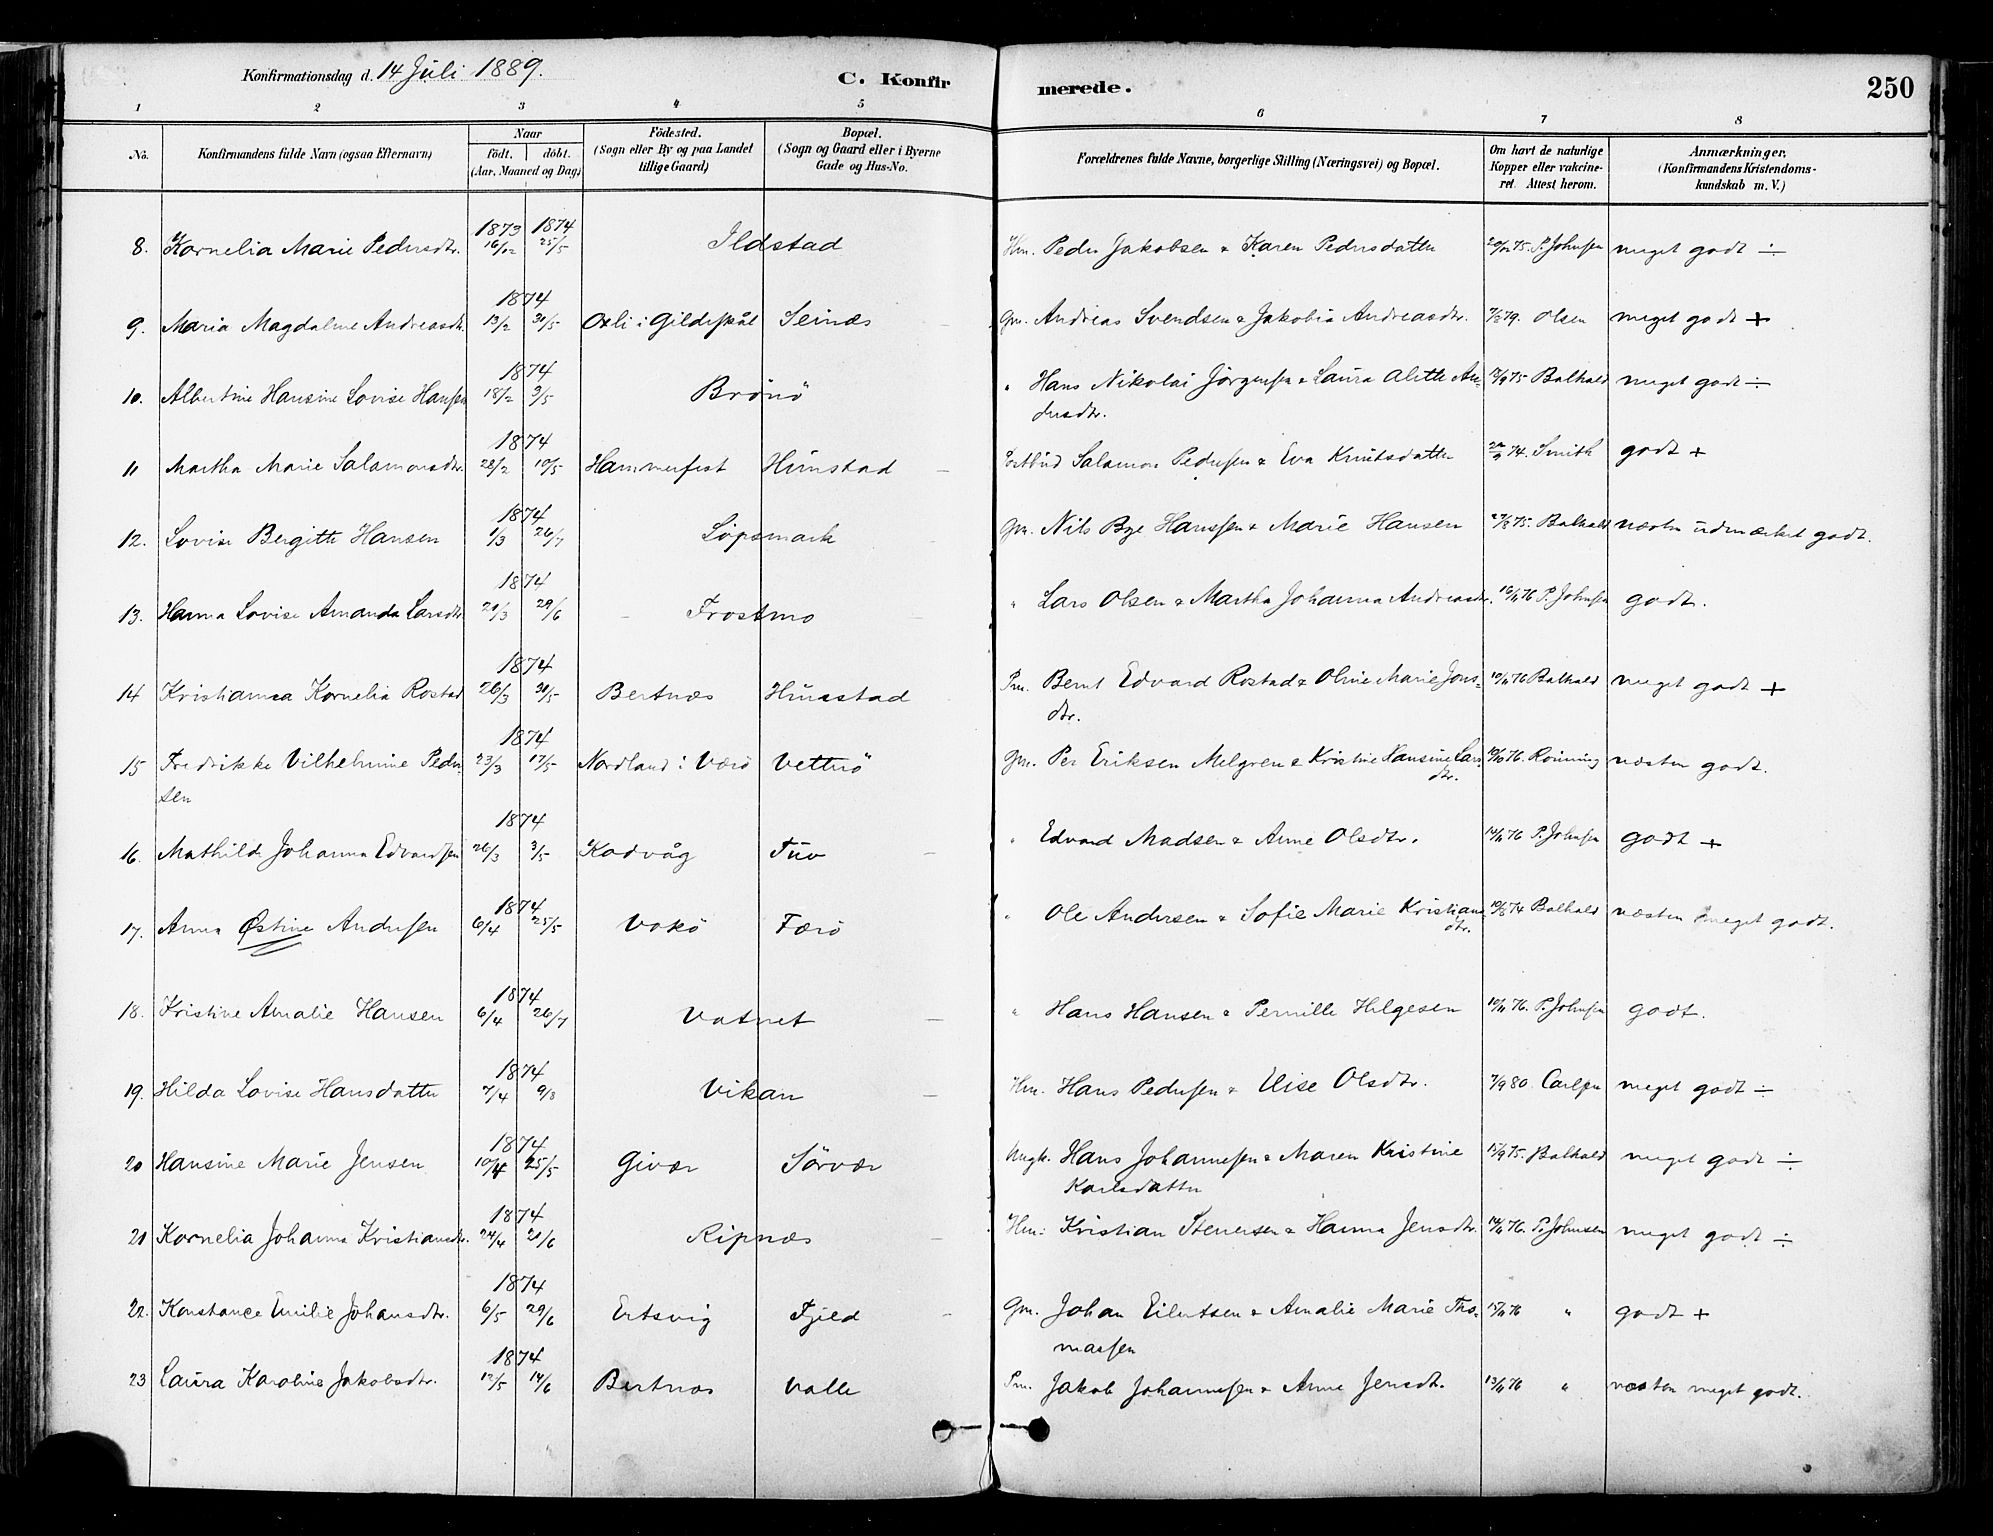 Konfirmationsdag d. 14 Juli 1889.
C. Konfirmerede.
250
1 2 3 4 5 6 7 8
No.
Konfirmandens fulde Navn (ogsaa Efternavn)
Naar
födt. döbt.
(Aar, Maaned og Dag)
Födested.
(Sogn eller By og paa Landet
tillige Gaard)
Bopæl.
(Sogn og Gaard eller i Byerne
Gade og Hus-No.
Forældrenes fulde Navne, borgerlige Stilling (Næringsvei) og Bopæl.
Om havt de naturlige
Kopper eller vakcine-
ret. Attest herom.
Anmærkninger,
(Konfirmandens Kristendoms-
kundskab m. V.)
1873 1874
8. Kornelia Marie Pedersdtr. 16/12 25/5 Ildstad Hm. Peder Jakobsen & Karen Pedersdatter P. Johnsen meget godt ÷
1874
9. Maria Magdalene Andreasdtr. 13/2 31/5 Oxli i Gildeskål Seinæs Gm. Andreas Svendsen & Jakobia Andreasdtr. Olsen meget godt +
1874
10. Albertine Hansine Lovise Hansen 18/2 3/5 Brönö " Hans Nikolai Jörgensen & Laura Alette An-
dersdtr. Balhald meget godt ÷
1874
11 Martha Marie Salamonsdtr. 28/2 10/5 Hammerfest Hunstad Postbud Salamon Pedersen & Eva Knutsdatter 74. Smith godt +
1874
12. Lovise Bergitte Hansen 1/3 26/7 Löpsmark Gm. Nils Bye Hanssen & Marie Hansen Balhald næsten udmærket godt.
1874
13. Hanna Lovise Amanda Larsdtr. 21/3 29/6 Frostmo " Lars Olsen & Martha Johanna Andreasdtr. 76 P. Johnsen godt.
1874
14 Kristiansa Kornelia Rostad 26/3 31/5 Bertnæs Hunstad Pm. Bernt Edvard Rostad & Oline Marie Jons-
dtr. 76 Balhald meget godt +
1874
15 Fredrikke Vilhelmine Peder-
sen 23/3 17/5 Nordland i Værö Vetterö Gm. Per Eriksen Melgren & Kristine Hansine Lars-
dtr. 76. Rönning næsten godt.
1874
16. Mathilde Johanna Edvardsen 26/3 3/5 Kadvåg Tuv " Edvard Madsen & Anne Olsdtr. 76 P. Johnsen godt +
1874
17. Anna Østine Andersen 6/4 25/5 Vokö Færö " Ole Andersen & Sofie Marie Kristians-
dtr. 74 Balhald næsten meget godt.
1874
18. Kristine Amalie Hansen 6/4 26/7 Vatnet " Hans Hansen & Pernille Helgesen 76. P. Johnsen godt.
1874
19. Hilda Lovise Hansdatter 7/4 9/8 Vikan Hm. Hans Pedersen & Elise Olsdtr. 7/9 80 Carlsen meget godt ÷
1874
20 Hansine Marie Jensen 10/4 25/5 Givær Sörvær Ungk. Hans Johannesen & Maren Kristine
Karlsdatter 15/9 75. Balhald meget godt ÷
1874
21 Kornelia Johanna Kristiansdtr. 24/4 21/6 Ripnæs Hm: Kristian Stenersen & Hanna Jensdtr. 76. P. Johnsen meget godt ÷
1874
22. Konstance Emilie Johansdtr. 6/5 29/6 Ertsvig Fjeld Gm. Johan Eilertsen & Amalie Marie Tho-
massen 15/11 76 " godt +
1874
23 Laura Karoline Jakobsdtr. 12/5 14/6 Bertnæs Valle Pm. Jakob Johannesen & Anne Jensdtr. 13/11 76 " næsten meget godt.